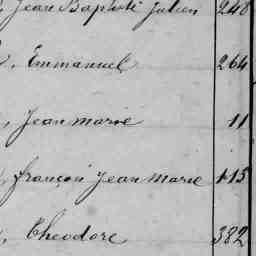 Jean Baptiste Julien 248
, Emmanuel 264
, Jean Marie 11
, françois Jean Marie 115
, Theodore 382